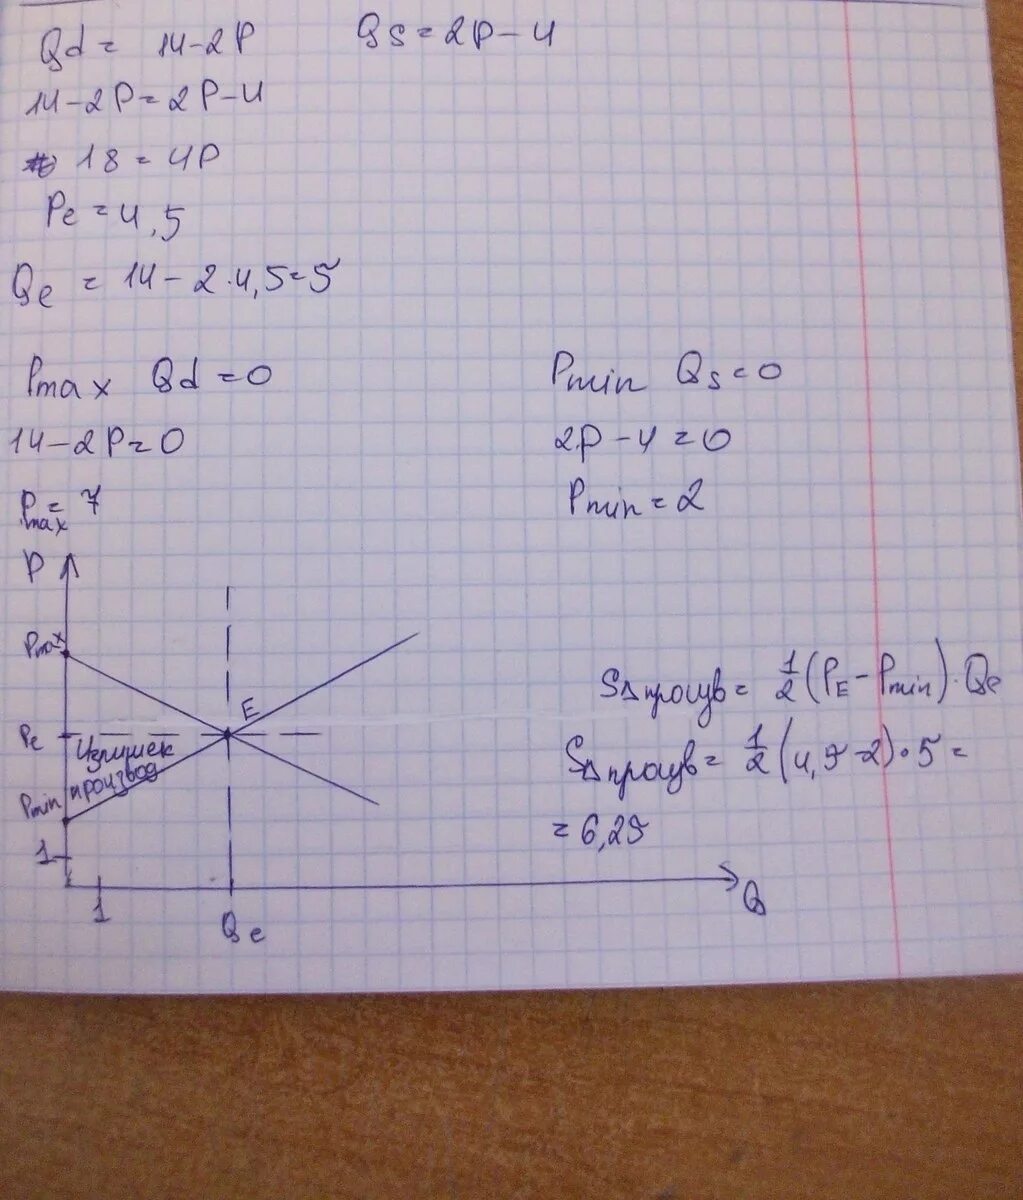 Qd = 14-2P    Qs = 2P-4
14-2P=2P-4
18 = 4P
Pe = 4,5
Qe = 14-2·4,5=5
Pmax Qd = 0    Pmin Qs = 0
14-2P=0    2P-4=0
Pmax = 7    Pmin = 2
P
Pmax
E
Pe
Излишек
производ
Pmin
1
1
Qe
Q
S△произв = 1/2 (PE - Pmin)·Qe
S△произв = 1/2 (4,5-2)·5 =
= 6,25